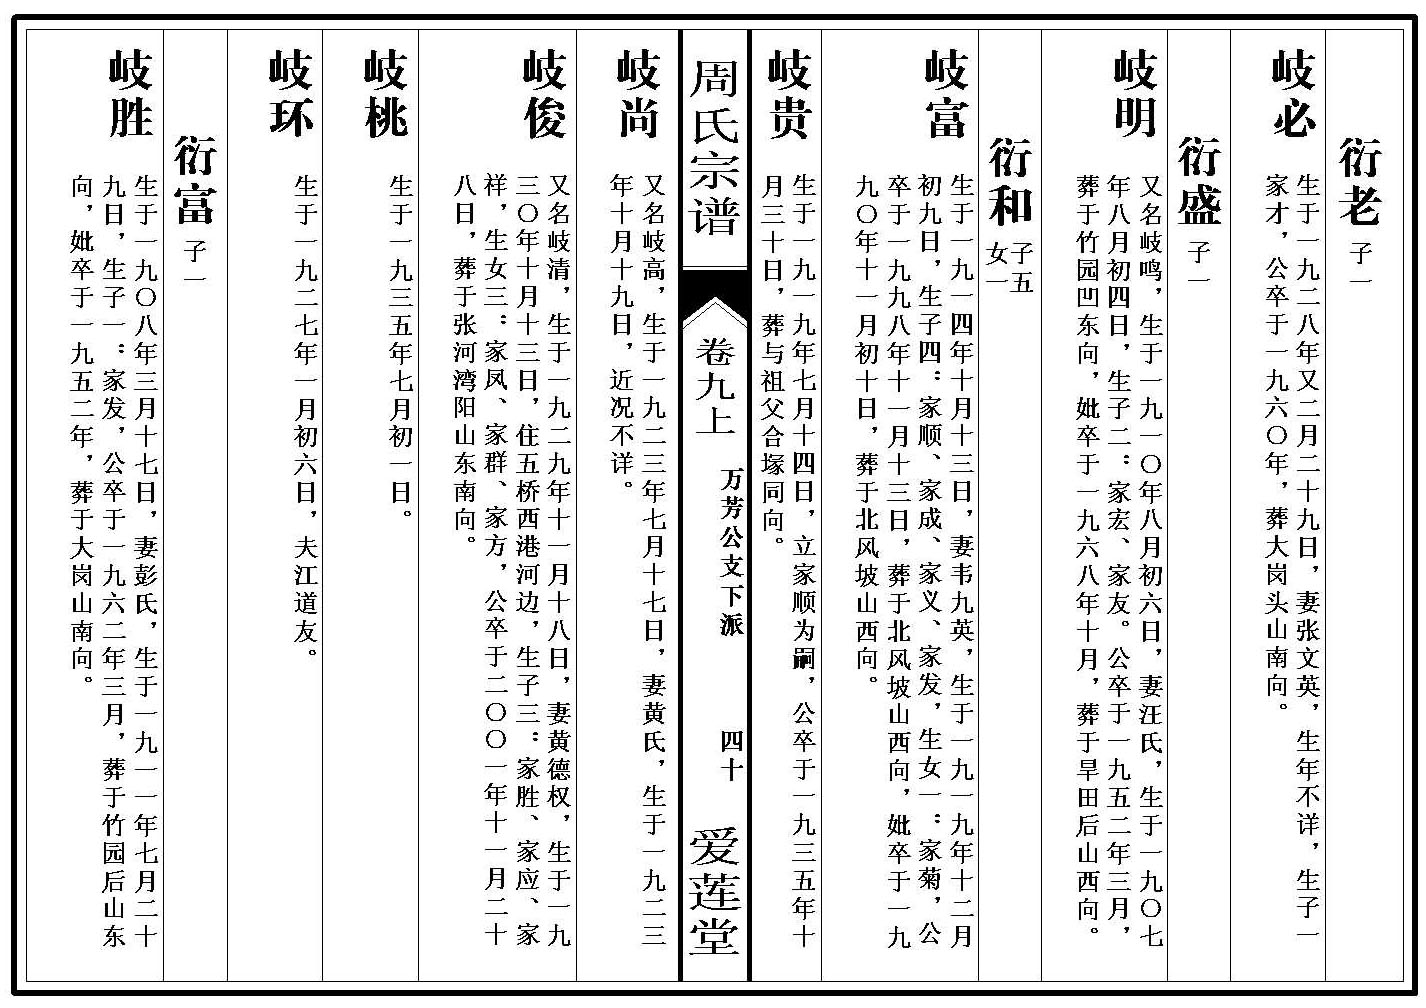 衍老
子一
岐必
生于一九二八年又二月二十九日，妻张文英，生年不详，生子一
家才，公卒于一九六〇年，葬大岗头山南向。
衍盛
子一
岐明
又名岐鸣，生于一九一〇年八月初六日，妻汪氏，生于一九〇七
年八月初四日，生子二：家宏、家友。公卒于一九五二年三月，
葬于竹园凹东向，妣卒于一九六八年十月，葬于旱田后山西向。
衍和
子五
女一
岐富
生于一九一四年十月十三日，妻韦九英，生于一九一九年十二月
初九日，生子四：家顺、家成、家义、家发，生女一：家菊，公
卒于一九九八年十一月十三日，葬于北风坡山西向，妣卒于一九
九〇年十一月初十日，葬于北风坡山西向。
岐贵
生于一九一九年七月十四日，立家顺为嗣，公卒于一九三五年十
月三十日，葬与祖父合塚同向。
周氏宗谱
卷九上
万芳公支下派
四十
爱莲堂
岐尚
又名岐高，生于一九二三年七月十七日，妻黄氏，生于一九二三
年十月十九日，近况不详。
岐俊
又名岐清，生于一九二九年十一月十八日，妻黄德权，生于一九
三〇年十月十三日，住五桥西港河边，生子三：家胜、家应、家
祥，生女三：家凤、家群、家方，公卒于二〇〇一年十一月二十
八日，葬于张河湾阳山东南向。
岐桃
生于一九三五年七月初一日。
岐环
生于一九二七年一月初六日，夫江道友。
衍富
子一
岐胜
生于一九〇八年三月十七日，妻彭氏，生于一九一一年七月二十
九日，生子一：家发，公卒于一九六二年三月，葬于竹园后山东
向，妣卒于一九五二年，葬于大岗山南向。